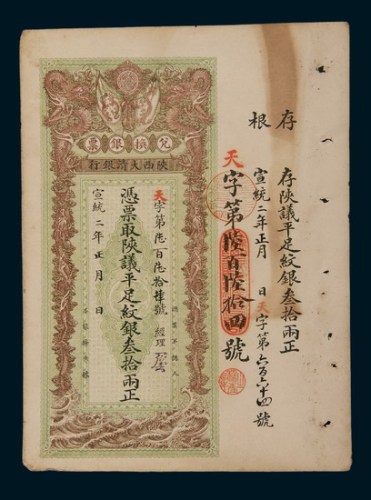 存根
存陝議平足紋銀叁拾兩正
宣統二年正月 日 天字第六百六十四號
天字第陸百陸拾四號
兌換銀票
陝西大清銀行
天字第陸百陸拾肆號 經理
憑票取陝議平足紋銀叁拾兩正
宣統二年正月 日